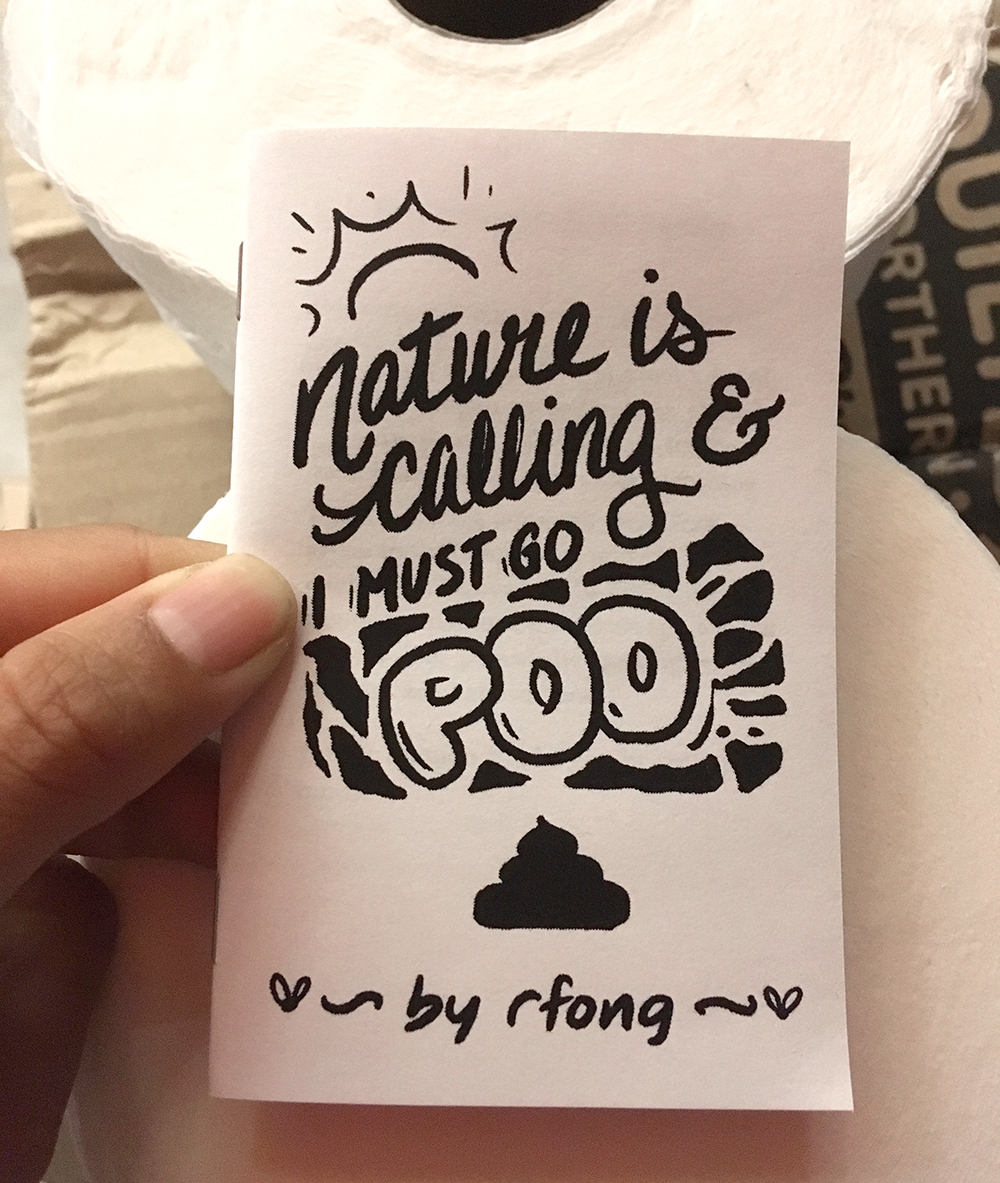 nature is
calling &
I MUST GO
POO
by rfong
QUILT
NORTHERN